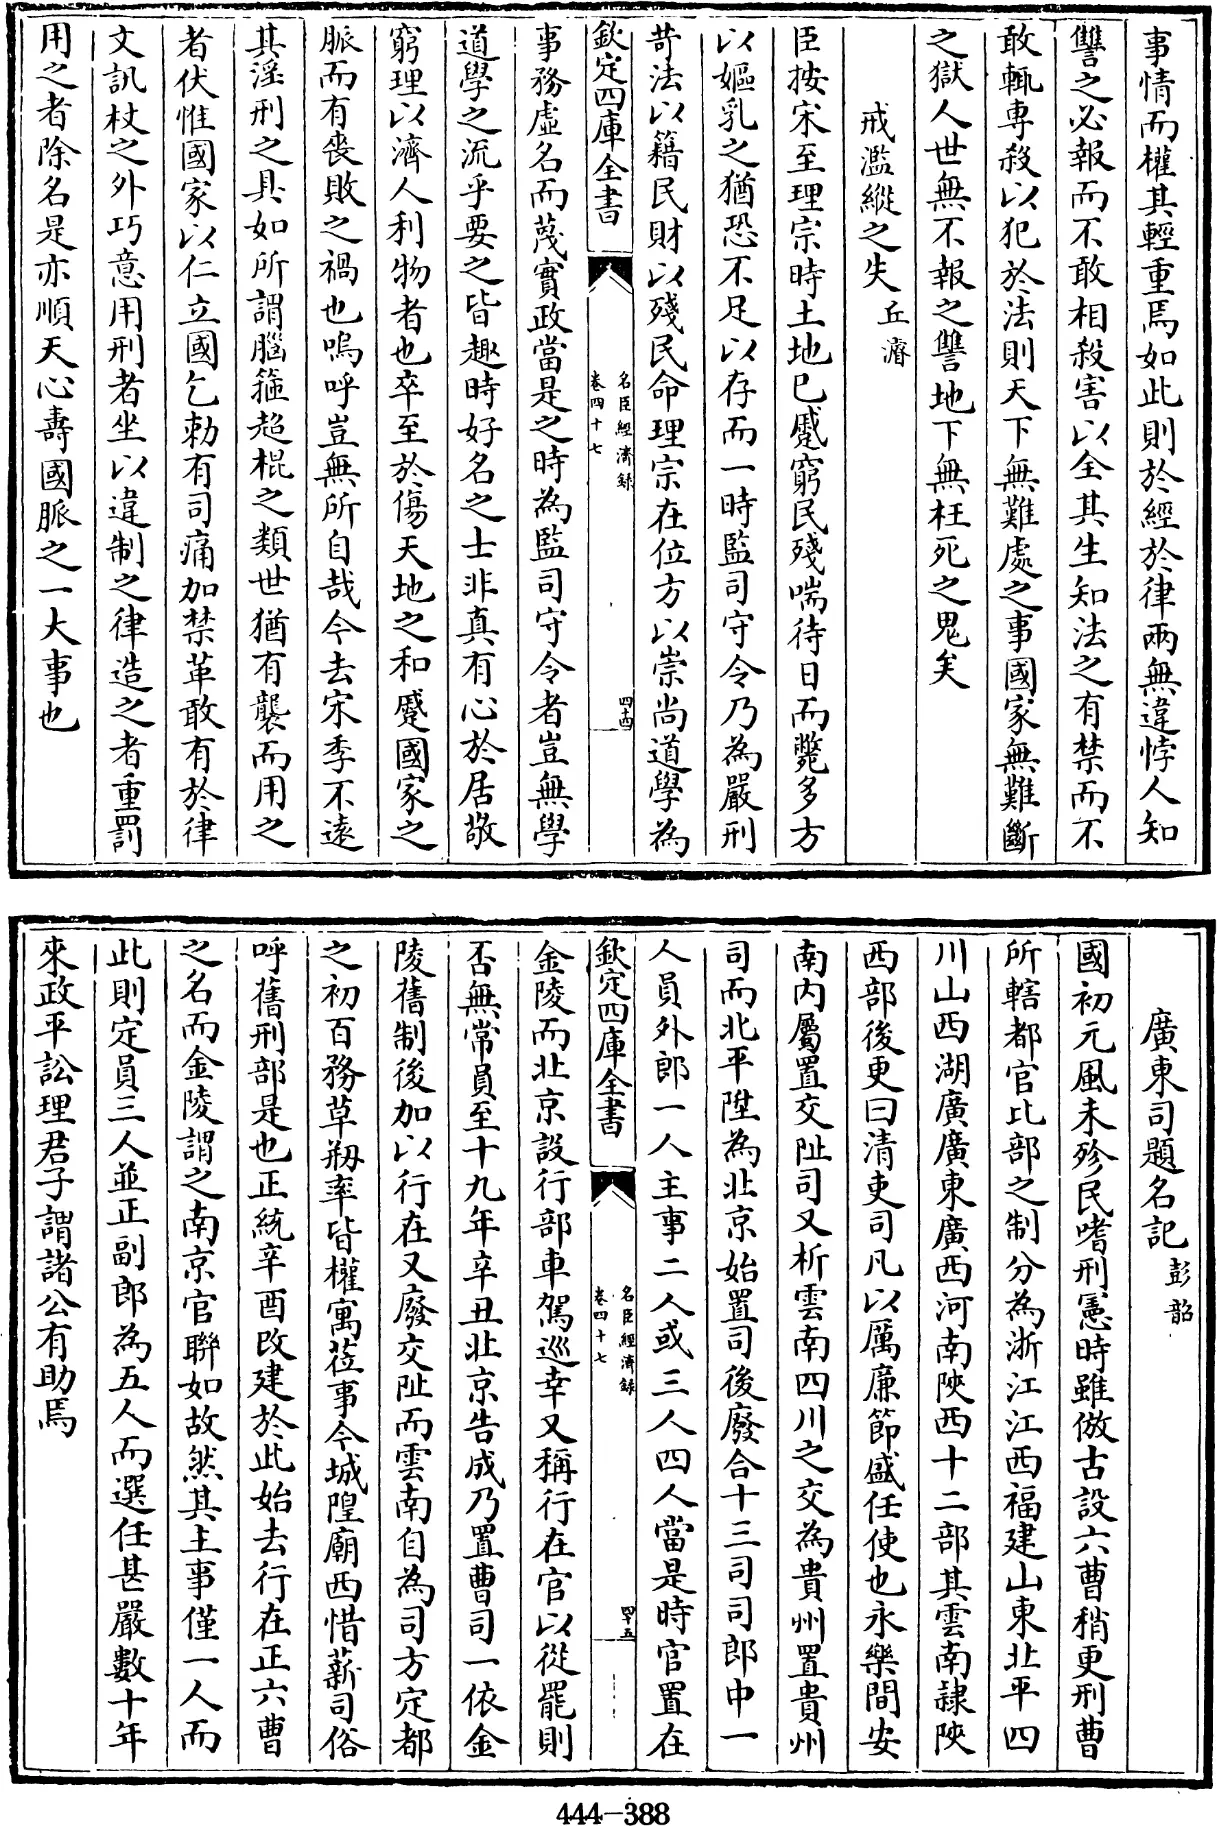 事情而權其輕重焉如此則於經於律兩無違悖人知
讐之必報而不敢相殺害以全其生知法之有禁而不
敢輒専殺以犯於法則天下無難處之事國家無難斷
之獄人世無不報之讐地下無枉死之鬼矣
戒濫縱之失 丘濬
臣按宋至理宗時土地已蹙窮民殘喘待日而斃多方
以嫗乳之猶恐不足以存而一時監司守令乃為嚴刑
苛法以籍民財以殘民命理宗在位方以崇尚道學為
欽定四庫全書
名臣經濟錄
卷四十七
四十四
事務虛名而蔑實政當是之時為監司守令者豈無學
道學之流乎要之皆趣時好名之士非真有心於居敬
窮理以濟人利物者也卒至於傷天地之和蹙國家之
脈而有喪敗之禍也嗚呼豈無所自哉今去宋季不遠
其淫刑之具如所謂腦箍超棍之類世猶有襲而用之
者伏惟國家以仁立國乞勅有司痛加禁革敢有於律
文訊杖之外巧意用刑者坐以違制之律造之者重罰
用之者除名是亦順天心壽國脈之一大事也
廣東司題名記 彭韶
國初元風未殄民嗜刑憲時雖倣古設六曹稍更刑曹
所轄都官比部之制分為浙江江西福建山東北平四
川山西湖廣廣東廣西河南陜西十二部其雲南隷陜
西部後更曰清吏司凡以厲廉節盛任使也永樂間安
南内屬置交阯司又析雲南四川之交為貴州置貴州
司而北平陞為北京始置司後廢合十三司司郎中一
人員外郎一人主事二人或三人四人當是時官置在
欽定四庫全書
名臣經濟錄
卷四十七
四十五
金陵而北京設行部車駕巡幸又稱行在官以從罷則
否無常員至十九年辛丑北京告成乃置曹司一依金
陵舊制後加以行在又廢交阯而雲南自為司方定都
之初百務草剏率皆權寓莅事今城隍廟西惜薪司俗
呼舊刑部是也正統辛酉改建於此始去行在正六曹
之名而金陵謂之南京官聯如故然其主事僅一人而
此則定員三人並正副郎為五人而選任甚嚴數十年
來政平訟理君子謂諸公有助焉
444-388